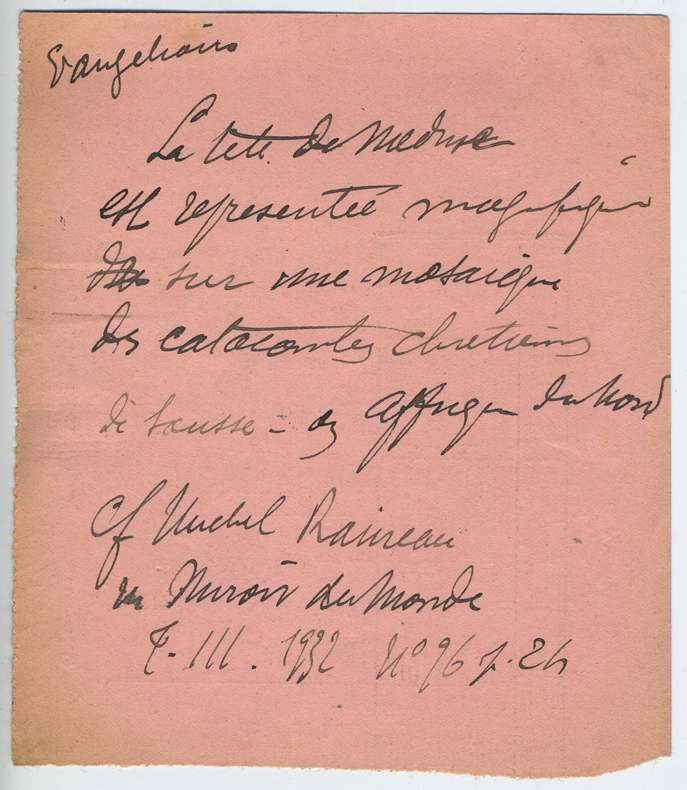 Evangeliaire
La tete de Meduse
est representée magnifique
sur une mosaique
des catacombes chretiennes
de Sousse - en Affrique du Nord
cf Michel Raineau
in Miroir du Monde
T. III. 1932 N° 96 p.